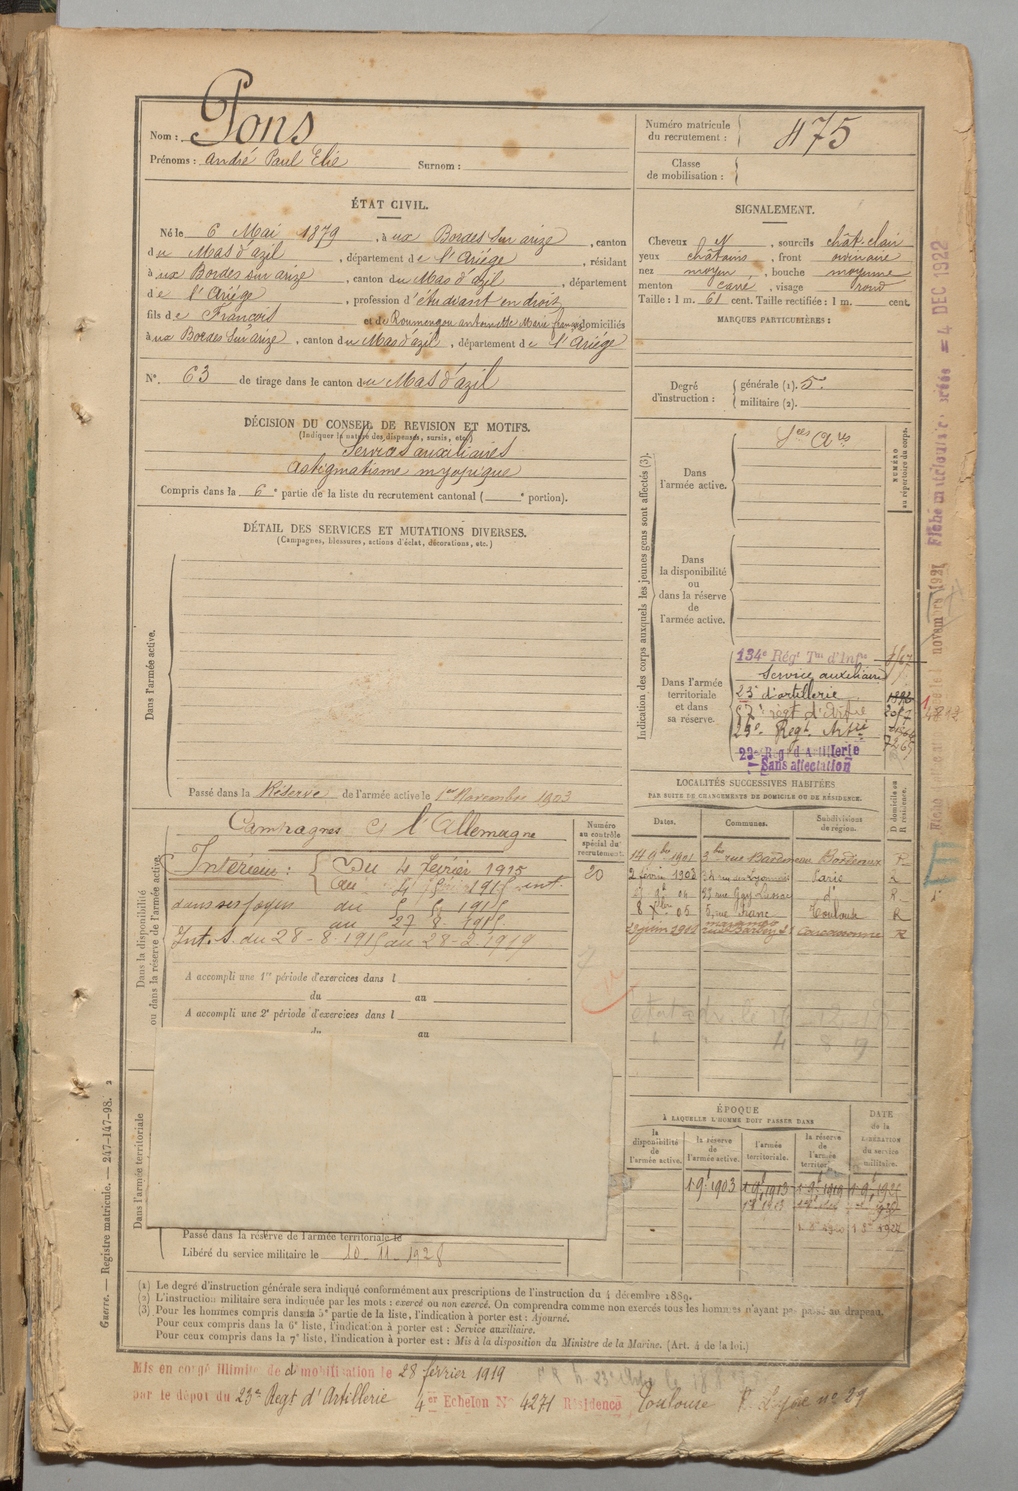 Nom : Pons
Prénoms : André Paul Elie Surnom :
Numéro matricule du recrutement : 475
Classe de mobilisation :
ÉTAT CIVIL.
Né le 6 Mai 1879, à ux Bordes sur arize, canton
du Mas d'azil, département de l'Ariége, résidant
à ux Bordes sur arize, canton du Mas d'azil, département
de l'Ariége, profession d'étudiant en droit
fils de François et de Roumengou antoinette Marie domiciliés
à ux Bordes Sur arize, canton du Mas d'azil, département de l'Ariége
N°. 63 de tirage dans le canton du Mas d'azil
SIGNALEMENT.
Cheveux N, sourcils chât. clair
yeux châtains, front ordinaire
nez moyen, bouche moyenne
menton cave, visage rond
Taille : 1 m. 61 cent. Taille rectifiée : 1 m. cent.
MARQUES PARTICULIÈRES :
Degré d'instruction : générale (1). 5.
militaire (2).
DÉCISION DU CONSEIL DE REVISION ET MOTIFS.
(Indiquer la nature des dispenses, sursis, etc.)
Services auxiliaires
astigmatisme myopique
Compris dans la 6e partie de la liste du recrutement cantonal ( e portion).
DÉTAIL DES SERVICES ET MUTATIONS DIVERSES.
(Campagnes, blessures, actions d'éclat, décorations, etc.)
Dans l'armée active.
Passé dans la Réserve de l'armée active le 1er Novembre 1903
Indication des corps auxquels les jeunes gens sont affectés (3).
NUMÉRO au répertoire du corps.
Dans l'armée active.
Dans la disponibilité ou dans la réserve de l'armée active.
Dans l'armée territoriale et dans sa réserve.
134e Régt Tal d'Infie
Service auxiliaire
23e d'artillerie
23e Regt Artie
23e Regt d'Artillerie
Sans affectation
Fiche matricule créée = 4 DEC 1922
Campagnes C. l'Allemagne
Intérieur : Du 4 Février 1915
dans ses foyers du
au 27 8 1915
Int. S. du 28-8-1915 au 28-2-1919
Numéro au contrôle spécial du recrutement.
20
Dans la disponibilité ou dans la réserve de l'armée active.
A accompli une 1re période d'exercices dans l
du au
A accompli une 2e période d'exercices dans l
du au
LOCALITÉS SUCCESSIVES HABITÉES
PAR SUITE DE CHANGEMENTS DE DOMICILE OU DE RÉSIDENCE.
Dates. Communes. Subdivisions de région. D domicile ou R résidence.
14 9bre 1901 Bordeaux R
2 février 1903 Paris R
04 rue Gay Lussac do R
8 Xbre 05 Toulouse R
22 juin 1908 Carcassonne R
ÉPOQUE
À LAQUELLE L'HOMME DOIT PASSER DANS
la disponibilité de l'armée active. la réserve de l'armée active. l'armée territoriale. la réserve de l'armée territor.
DATE de la LIBÉRATION du service militaire.
1.9t 1903
Dans l'armée territoriale
Passé dans la réserve de l'armée territoriale le
Libéré du service militaire le 10-11-1928
(1) Le degré d'instruction générale sera indiqué conformément aux prescriptions de l'instruction du 4 décembre 1889.
(2) L'instruction militaire sera indiquée par les mots : exercé ou non exercé. On comprendra comme non exercés tous les hommes n'ayant pas passé au drapeau.
(3) Pour les hommes compris dans la 5e partie de la liste, l'indication à porter est : Ajourné.
Pour ceux compris dans la 6e liste, l'indication à porter est : Service auxiliaire.
Pour ceux compris dans la 7e liste, l'indication à porter est : Mis à la disposition du Ministre de la Marine. (Art. 4 de la loi.)
Guerre. — Registre matricule. — 247-147-98. 2
Mis en congé illimité de démobilisation le 28 février 1919
par le dépot du 23e Regt d'Artillerie 4er Echelon N° 4271 Résidence Toulouse